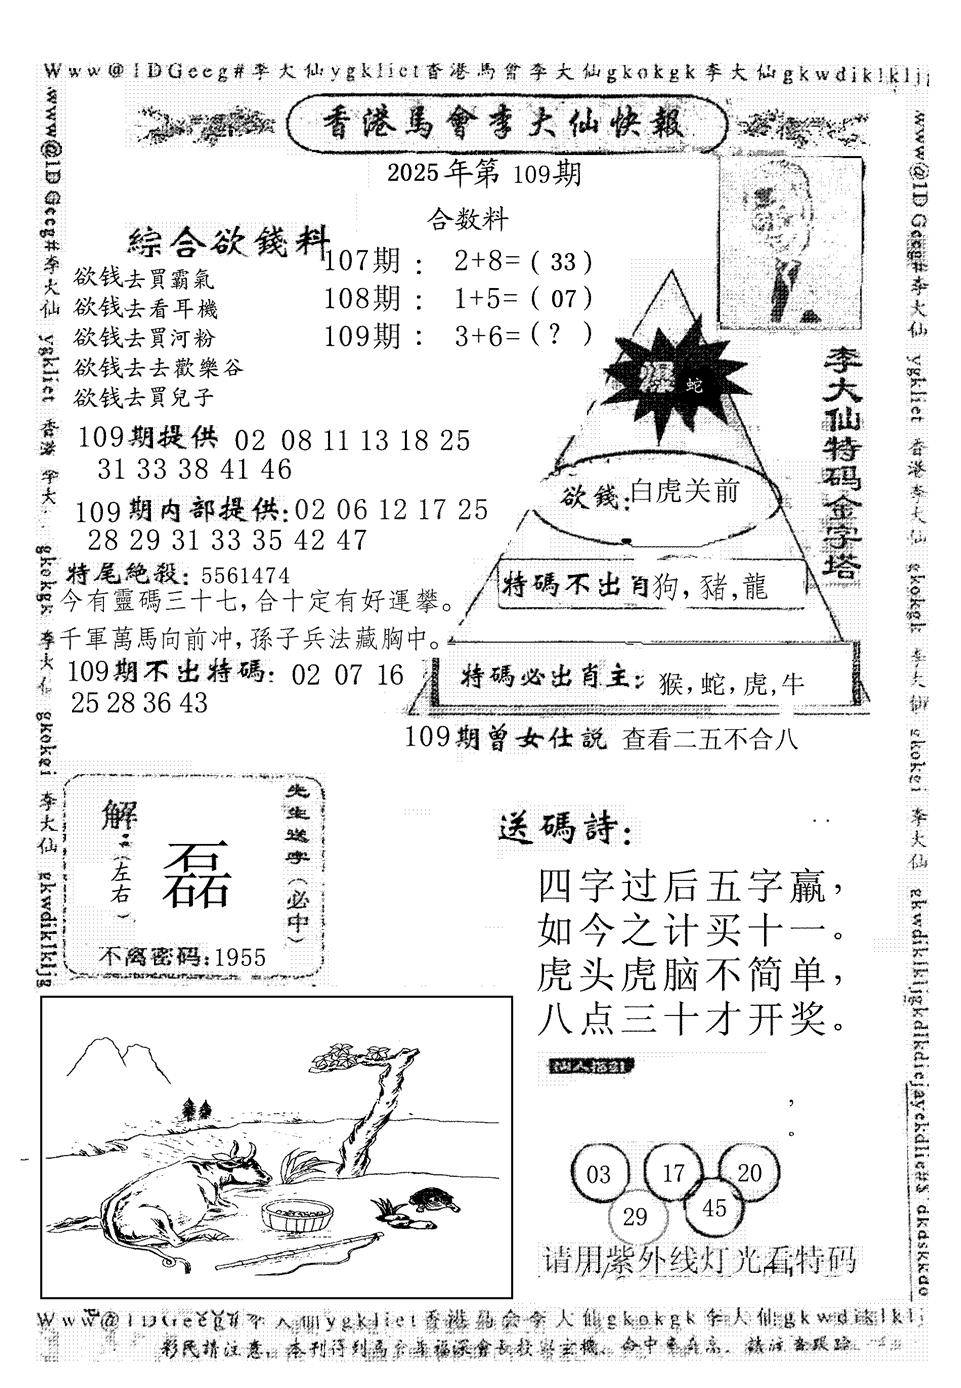 Www@1DGeeg#李大仙ygkliet香港馬會李大仙gkokgk李大仙gkwdiklkljg
香港馬會李大仙快報
2025年第 109期
合数料
綜合欲錢料
107期： 2+8=（33）
108期： 1+5=（07）
109期： 3+6=（? ）
欲钱去買霸氣
欲钱去看耳機
欲钱去買河粉
欲钱去去歡樂谷
欲钱去買兒子
109期提供 02 08 11 13 18 25
31 33 38 41 46
109期内部提供:02 06 12 17 25
28 29 31 33 35 42 47
特尾絶殺: 5561474
今有靈碼三十七,合十定有好運攀。
千軍萬馬向前冲,孫子兵法藏胸中。
109期不出特碼: 02 07 16
25 28 36 43
李大仙特码金字塔
爆 蛇
欲錢:白虎关前
特碼不出肖狗,豬,龍
特碼必出肖主: 猴,蛇,虎,牛
109期曾女仕説 查看二五不合八
先生送字（必中）
解:（左右）
磊
不离密码:1955
送碼詩:
四字过后五字羸，
如今之计买十一。
虎头虎脑不简单，
八点三十才开奖。
，
。
03 17 20
29 45
请用紫外线灯光看特码
www@1DGeeg#李大仙 ygkliet 香港 李大 gkokgk 李大 gkokei 李大仙 gkwdiklkljg
www@1DGeeg#李大仙 ygkliet 香港李大仙 gkokgk 李大仙 gkokei 李大仙 gkwdiklkljgkdlkdiejayekdlie#$ dkdskkdo
Www@1DGeeg#李大仙ygkliet香港馬会李大仙gkokgk李大仙gkwdiklklj
彩民請注意。本刊得到馬会